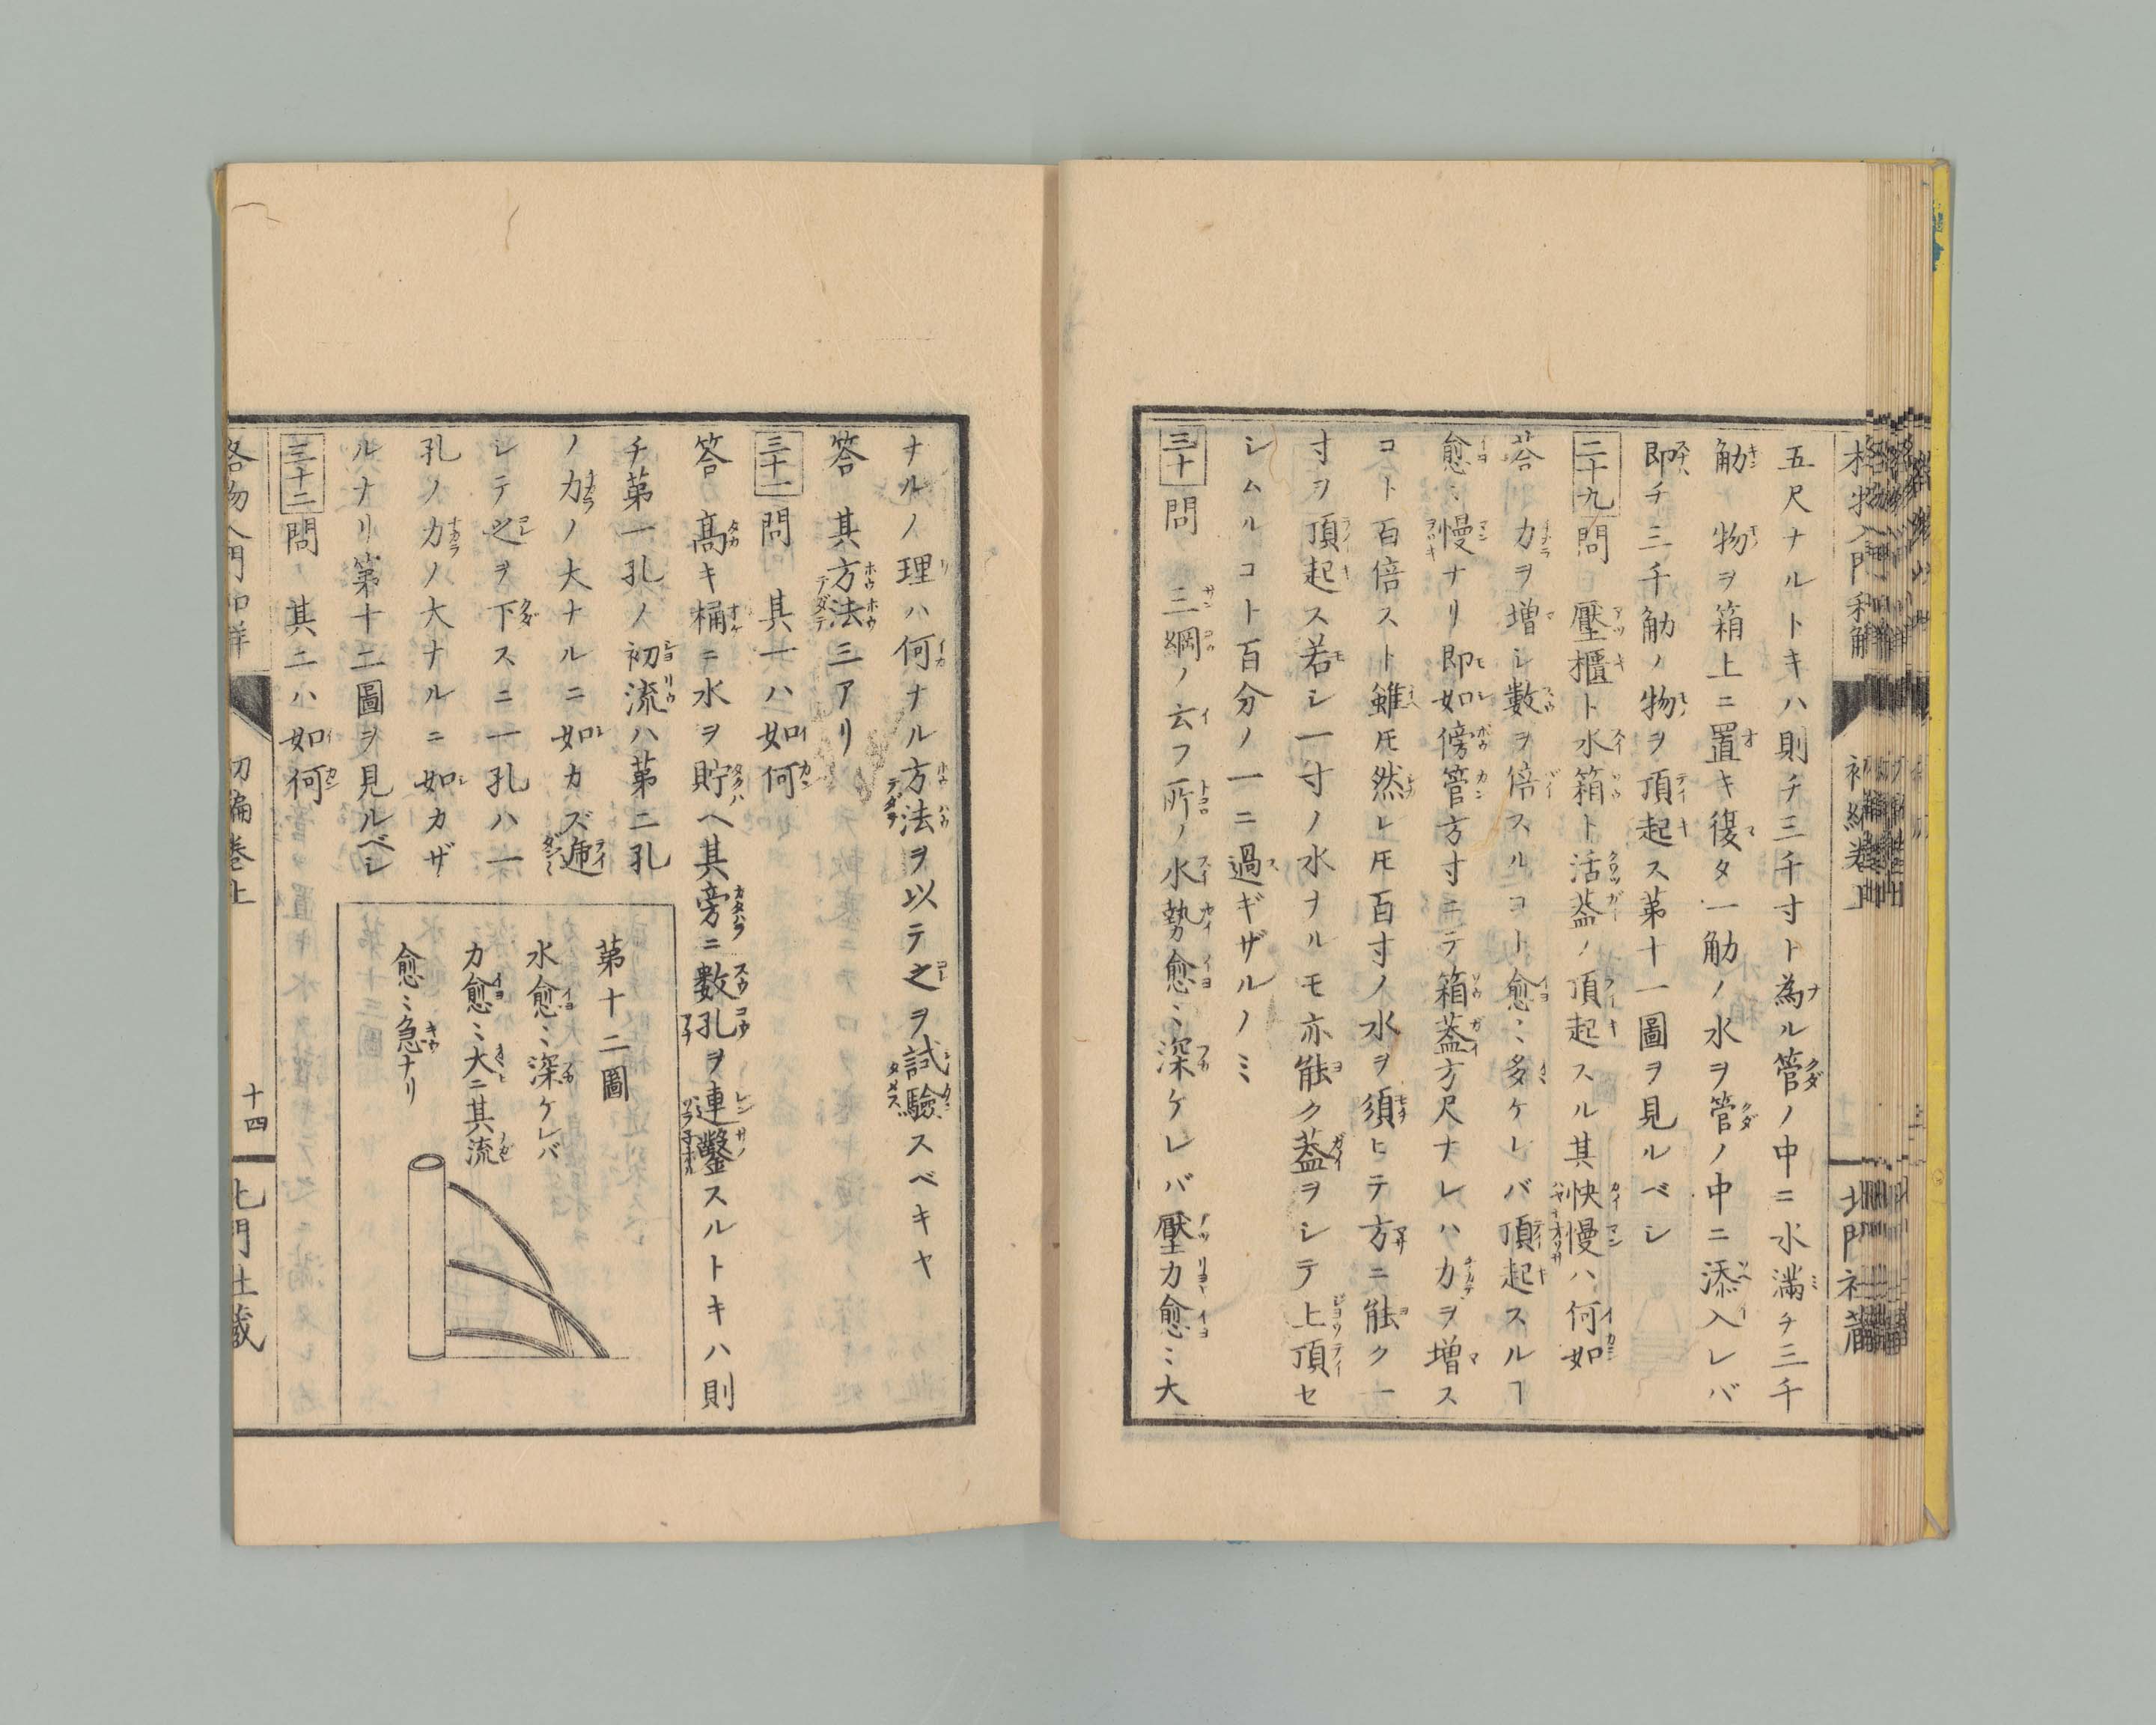 五尺ナルトキハ則チ三千寸ト為ル管ノ中ニ水満チ三千
觔ノ物ヲ箱上ニ置キ復タ一觔ノ水ヲ管ノ中ニ添入レバ
即チ三千觔ノ物ヲ頂起ス第十一圖ヲ見ルベシ
二十九 問 壓櫃ト水箱ト活蓋ノ頂起スル其快慢ハ何如
答 力ヲ増シ數ヲ倍スルコト愈〻多ケレバ頂起スルヿ
愈〻慢ナリ即如傍管方寸ニテ箱蓋方尺ナレハ力ヲ増ス
コト百倍スト雖𪜈然レ𪜈百寸ノ水ヲ須ヒテ方ニ能ク一
寸ヲ頂起ス若シ一寸ノ水ヲルモ亦能ク蓋ヲシテ上頂セ
シムルコト百分ノ一ニ過ギザルノミ
三十 問 三綱ノ云フ所ノ水勢愈〻深ケレバ壓力愈〻大
ナルノ理ハ何ナル方法ヲ以テ之ヲ試驗スベキヤ
答 其方法三アリ
三十一 問 其一ハ如何
答 高キ桶ニ水ヲ貯ヘ其旁ニ數孔ヲ連鑿スルトキハ則
チ第一孔ノ初流ハ第二孔
ノ力ノ大ナルニ如カズ逓
シテ之ヲ下スニ一孔ハ一
孔ノ力ノ大ナルニ如カザ
ルナリ第十二圖ヲ見ルベシ
第十二圖
水愈〻深ケレバ
力愈〻大ニ其流
愈〻急ナリ
三十二 問 其二ハ如何
格物入門和解
初編巻上
十四
北門社蔵